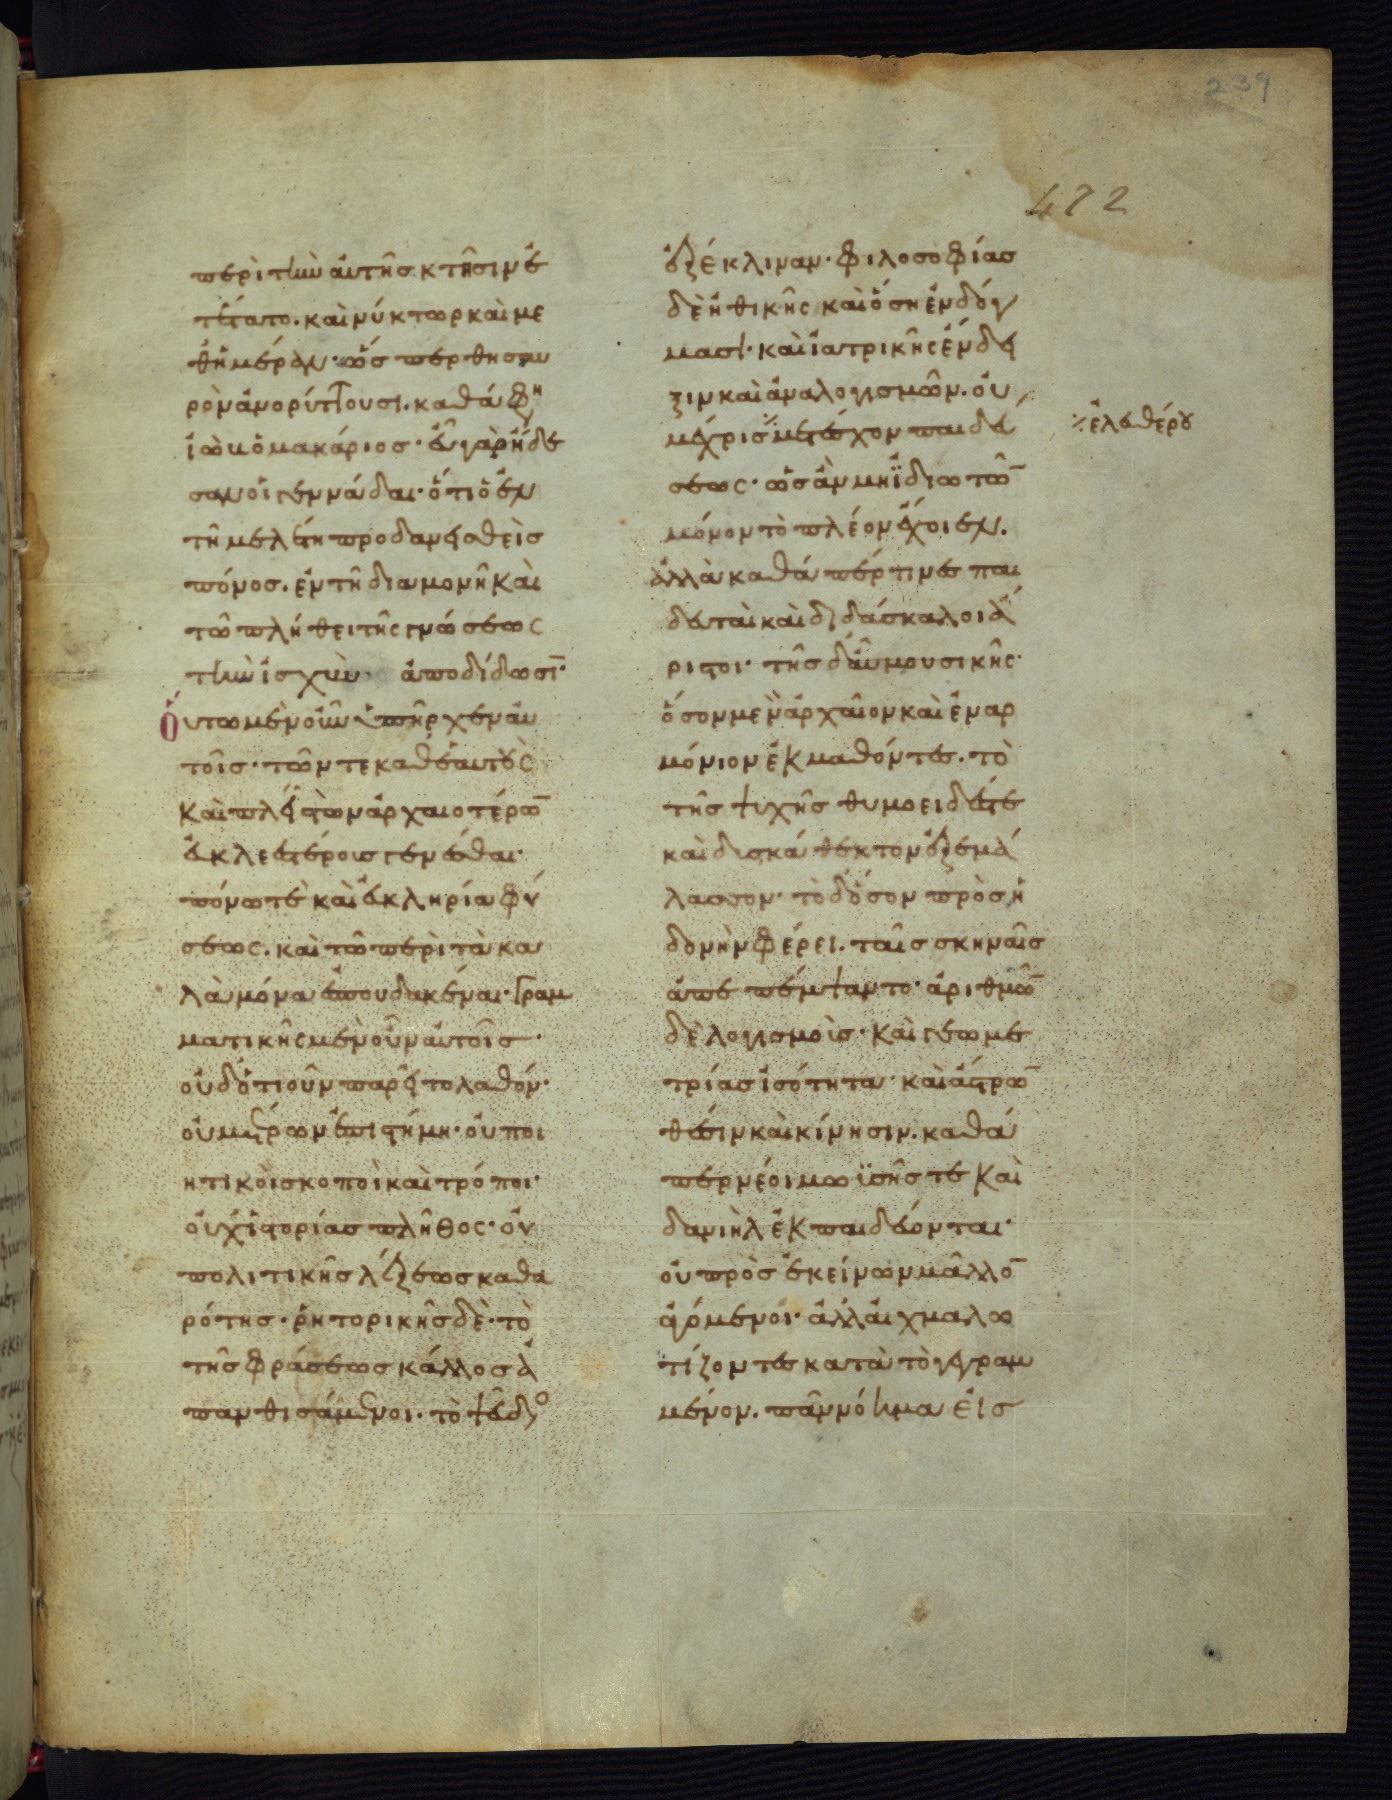 239
472
περὶ τὴν αὐτῆς κτῆσιν ἐ
τέτατο. καὶ νύκτωρ καὶ με
θημέραν· ὥσπερ θησαυ
ρὸν ἀνορύττουσι. καθά φη
ἰὼβ ὁ μακάριος· εὖ γὰρ ᾔδε
σαν οἱ γεννάδαι· ὅτι ὁ ἐν
τῆ μελέτη προδανεισθεὶς
πόνος. ἐν τῆ διαμονῆ καὶ
τῶ πλήθει τῆς γνώσεως
τὴν ἰσχὺν ἀποδίδωσῑ·
Οὕτω μὲν οὖν ὑπῆρχεν αὐ
τοῖς· τῶν τε καθ' ἑαυτοὺς
καὶ πλείστων ἀρχαιοτέρω̄
εὐκλεεστέροις γενέσθαι·
πόνω τὲ καὶ εὐκληρία φύ
σεως. καὶ τῶ περὶ τὰ κα
λὰ μόνα ἐσπουδακέναι· Γραμ
ματικῆς μὲν οὖν αὐτοῖς
οὐδ' ὁτιοῦν παρεῖτο λαθόν·
οὐ μέτρων ἐπιστήμη· οὐ ποι
ητικοὶ σκοποὶ καὶ τρόποι·
οὐχ ἱστορίας πλῆθος· οὐ
πολιτικῆς λέξεως καθα
ρότης· ῥητορικῆς δὲ· τὸ
τῆς φράσεως κάλλος ἀ
πανθισάμενοι· τὸ ψεῦδο
ἐξέκλιναν· φιλοσοφίας
δὲ ἠθικῆς καὶ ὅση ἐν δόγ
μασι· καὶ ἰατρικῆς ἐν δεί
ξιν καὶ ἀναλογισμῶν· οὐ
μέχρις μετέσχον παιδεύ
ἐλευθέρου
σεως· ὡς ἂν μὴ ἰδιωτῶ̄
μόνον τὸ πλέον ἔχοιεν.
ἀλλὰ καθά πέρ τινες παι
δευταὶ καὶ διδάσκαλοι ἄ
ριστοι· τῆς δ' αὖ μουσικῆς·
ὅσον μὲν ἀρχαῖον καὶ ἐναρ
μόνιον ἐκμαθόντες. τὸ
τῆς ψυχῆς θυμοειδές τε
καὶ δυσκάθεκτον ἐξεμά
λασσον· τὸ δ' ὅσον πρὸς ἡ
δονὴν φέρει. ταῖς σκηναῖς
ἀπεπέμψαντο· ἀριθμῶ̄
δὲ λογισμοὶς· καὶ γεωμε
τρίας ἰσότητα· καὶ ἄστρω̄
θέσιν καὶ κίνησιν. καθά
περ νέοι μωϊσῆς τὲ καὶ
δανιὴλ ἐκπαιδεύονται·
οὐ πρὸς ἐκείνων μᾶλλο̄
ἀγόμενοι· ἀλλ' αἰχμαλω
τίζοντες κατὰ τὸ γεγραμ
μένον. πᾶν νόημα εἰς